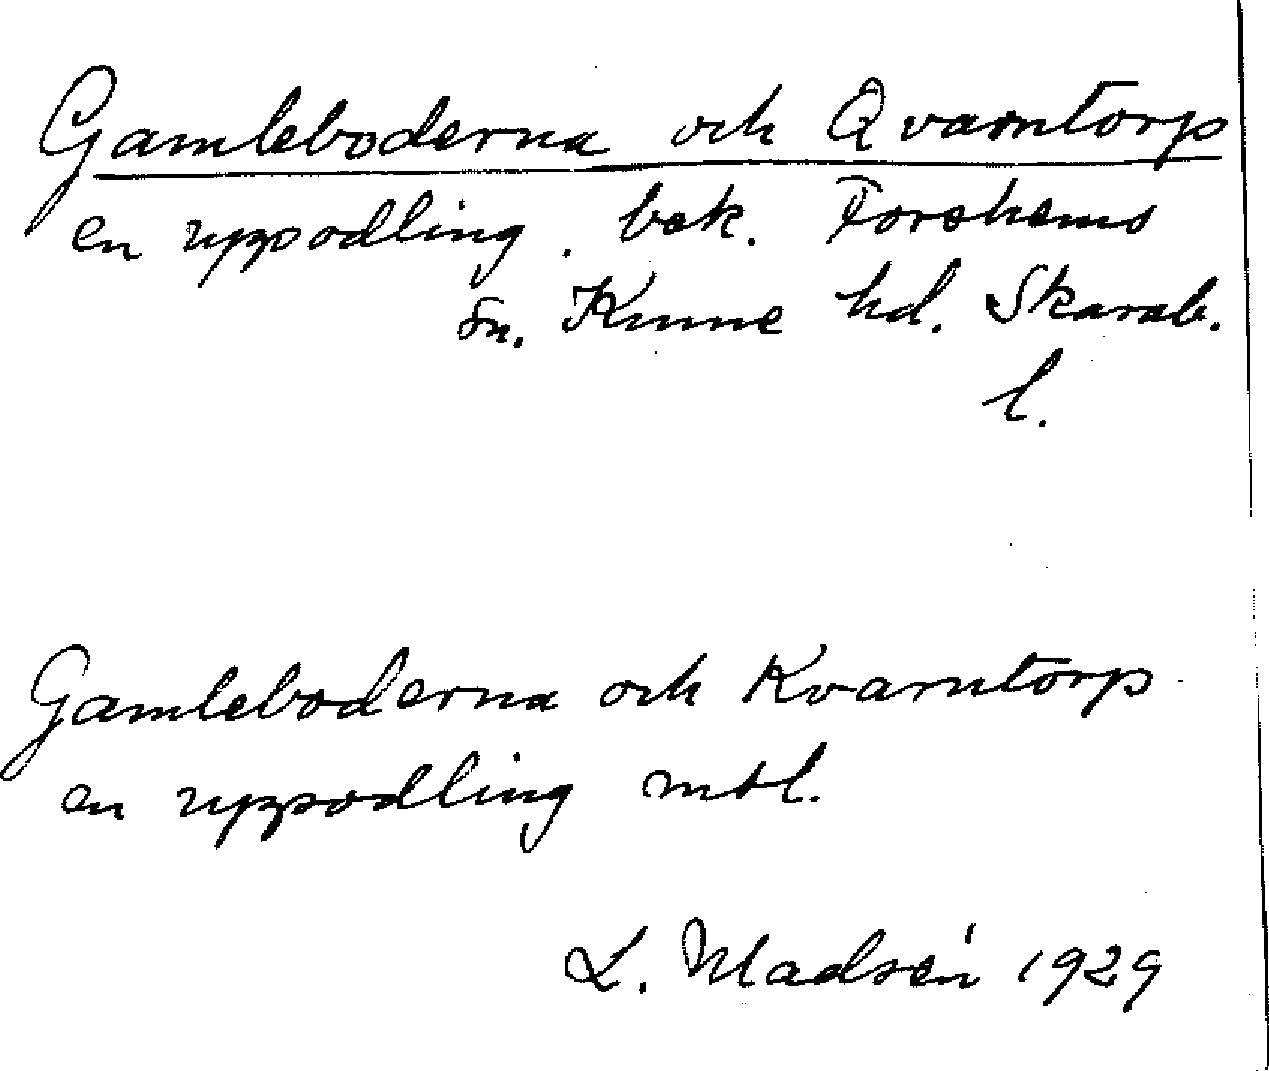 Gamleboderna och Qvarntorp
en uppodling. bek. Forshems
sn. Kinne hd. Skarab.
l.
Gamleboderna och Kvarntorp
en uppodling mtl.
L. Madsén 1929